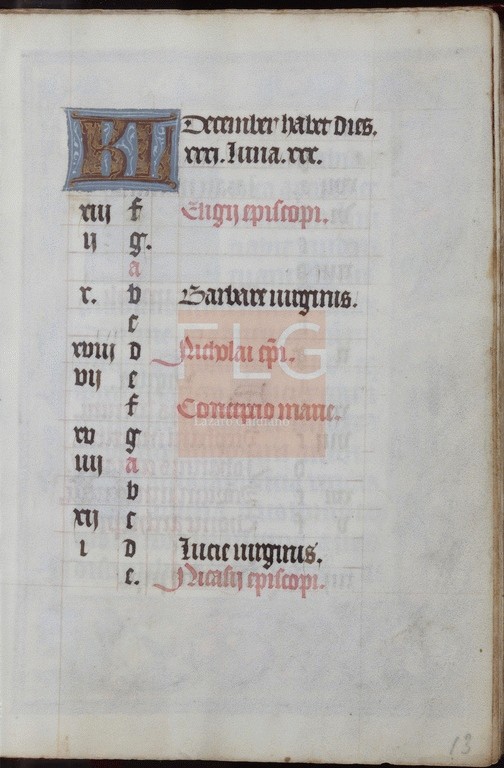 KL December habet dies.
xxxi. luna. xxx.
xiij f Eligij episcopi.
ij g.
a
x. b Barbare uirginis.
c
xviij d Nicholai epi.
vij e
f Conceptio marie.
xv g
iiij a
b
xij c
i d Lucie uirginis.
e. Nicasij episcopi.
FLG
Lázaro Galdiano
13